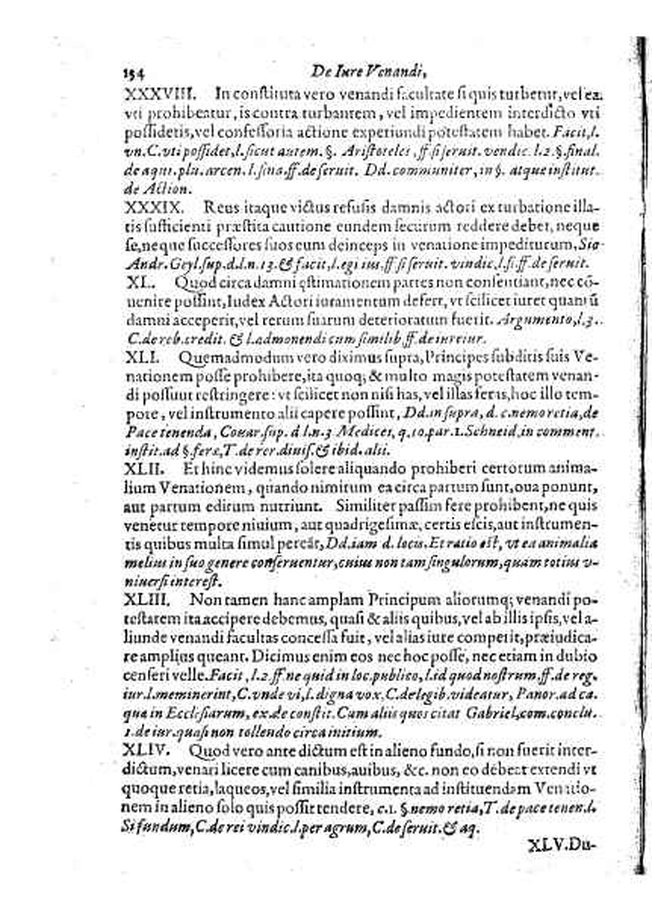 154 De Iure Venandi,
XXXVIII. In constituta vero venandi facultate si quis turbetur, vel ea
vti prohibeatur, is contra turbantem, vel impedientem interdicto vti
possidetis, vel confessoria actione experiundi potestatem habet. Facit, l.
vn. C. vti possidet, l. sicut autem. §. Aristoteles, ff. si seruit. vendic. l. 2. §. final.
de aqu. plu. arcen. l. fina. ff. de seruit. Dd. communiter, in §. atque institut.
de Action.
XXXIX. Reus itaque victus refusis damnis actori ex turbatione illa-
tis sufficienti præstita cautione eundem securum reddere debet, neque
se, neque successores suos eum deinceps in venatione impediturum, Sig
Andr. Geyl. sup. d. l. n. 13. & facit, l. egi ius, ff. si seruit. vindic, l. si. ff. de seruit.
XL. Quod circa damni ęstimationem partes non consentiant, nec cō-
uenire possint, Iudex Actori iuramentum defert, vt scilicet iuret quantū
damni acceperit, vel rerum suarum deterioratum fuerit. Argumento, l. 3.
C. de reb. credit. & l. admonendi cum similib. ff. de iureiur.
XLI. Quemadmodum vero diximus supra, Principes subditis suis Ve-
nationem posse prohibere, ita quoq; & multo magis potestatem venan-
di possunt restringere: vt scilicet non nisi has, vel illas feras, hoc illo tem-
pore, vel instrumento alii capere possint, Dd. in supra, d. c. nemo retia, de
Pace tenenda, Couar. sup. d l. n. 3 Medices, q. 10. par. 1. Schneid. in comment.
instit. ad §. feræ, T. de rer. diuis. & ibid. alii.
XLII. Et hinc videmus solere aliquando prohiberi certorum anima-
lium Venationem, quando nimirum ea circa partum sunt, oua ponunt,
aut partum editum nutriunt. Similiter passim fere prohibent, ne quis
venetur tempore niuium, aut quadrigesimæ, certis escis, aut instrumen-
tis quibus multa simul pereāt, Dd. iam d. locis. Et ratio est, vt ea animalia
melius in suo genere conseruentur, cuius non tam singulorum, quam totius v-
niuersi interest.
XLIII. Non tamen hanc amplam Principum aliorumq; venandi po-
testatem ita accipere debemus, quasi & aliis quibus, vel ab illis ipsis, vel a-
liunde venandi facultas concessa fuit, vel alias iure competit, præiudica-
re amplius queant. Dicimus enim eos nec hoc posse, nec etiam in dubio
censeri velle. Facit, l. 2. ff. ne quid in loc. publico, l. id quod nostrum, ff. de reg.
iur. l. meminerint, C. vnde vi, l. digna vox, C. de legib. videatur, Panor. ad ca.
qua in Ecclesiarum, ex. de constit. Cum aliis quos citat Gabriel, com. conclu.
1. de iur. quasi non tollendo circa initium.
XLIV. Quod vero ante dictum est in alieno fundo, si non fuerit inter-
dictum, venari licere cum canibus, auibus, &c. non eo debeat extendi vt
quoque retia, laqueos, vel similia instrumenta ad instituendam Venatio-
nem in alieno solo quis possit tendere, c. 1. §. nemo retia, T. de pace tenen. l.
Si fundum, C. de rei vindic. l. per agrum, C. de seruit. & aq.
XLV. Du-